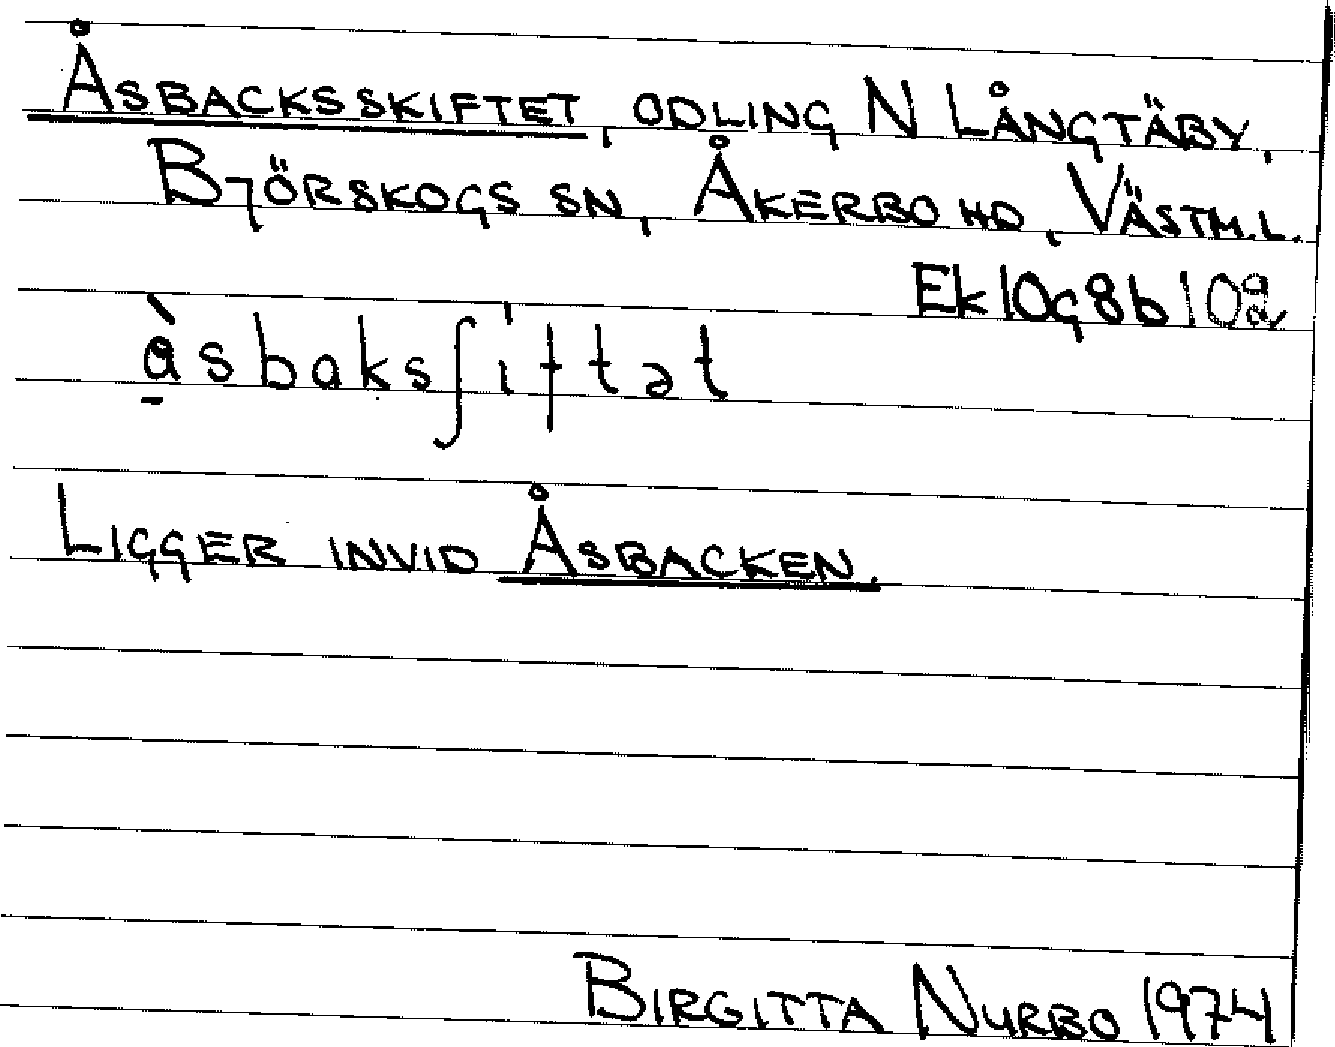 ÅSBACKSSKIFTET, ODLING N LÅNGTÄBY,
BJÖRSKOGS SN, ÅKERBO HD, VÄSTM.L.
Ek 10g8b 10a
å̀sbaksʃiftət
LIGGER INVID ÅSBACKEN.
BIRGITTA NURBO 1974